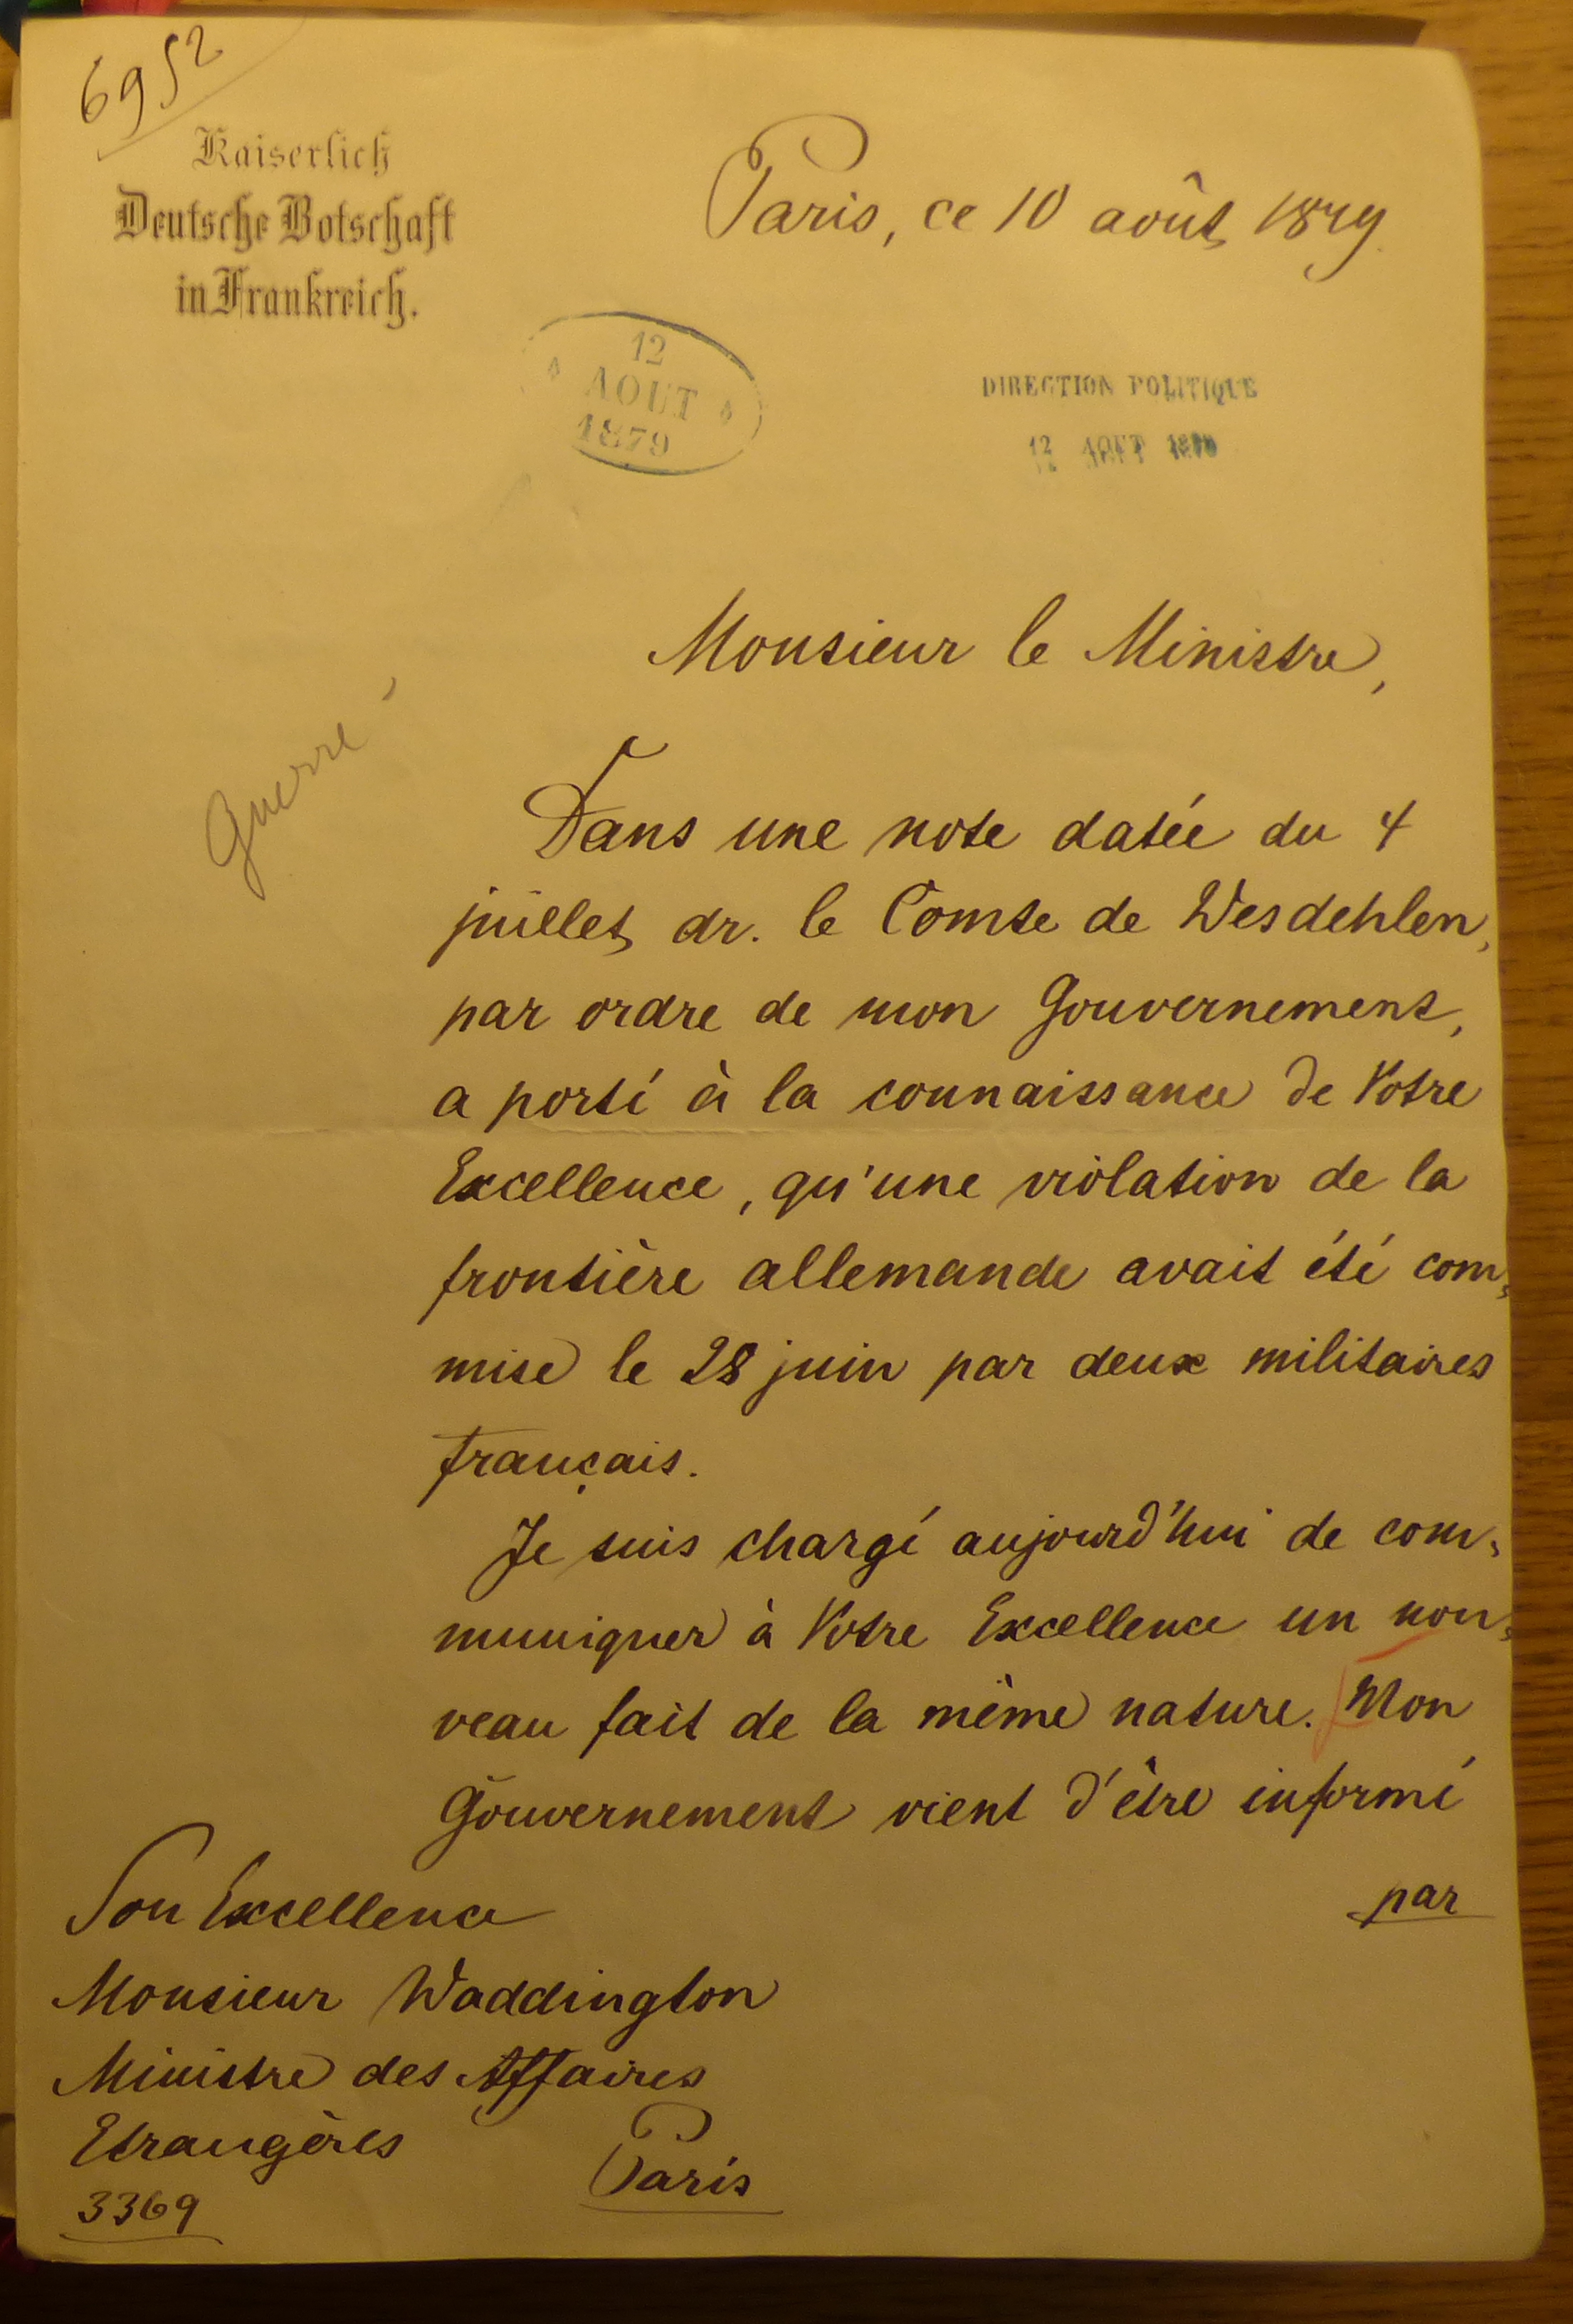 6952
Kaiserlich
Deutsche Botschaft
in Frankreich.
Paris, ce 10 août 1879.
12
AOUT
1879
DIRECTION POLITIQUE
12 AOUT 1879
Monsieur le Ministre,
Guerre
Dans une note datée du 4
juillet dr. le Comte de Wesdehlen,
par ordre de mon Gouvernement,
a porté à la connaissance de Votre
Excellence, qu'une violation de la
frontière allemande avait été com-
mise le 28 juin par deux militaires
français.
Je suis chargé aujourd'hui de com-
muniquer à Votre Excellence un nou-
veau fait de la même nature. Mon
Gouvernement vient d'être informé
par
Son Excellence
Monsieur Waddington
Ministre des Affaires
Etrangères
Paris
3369